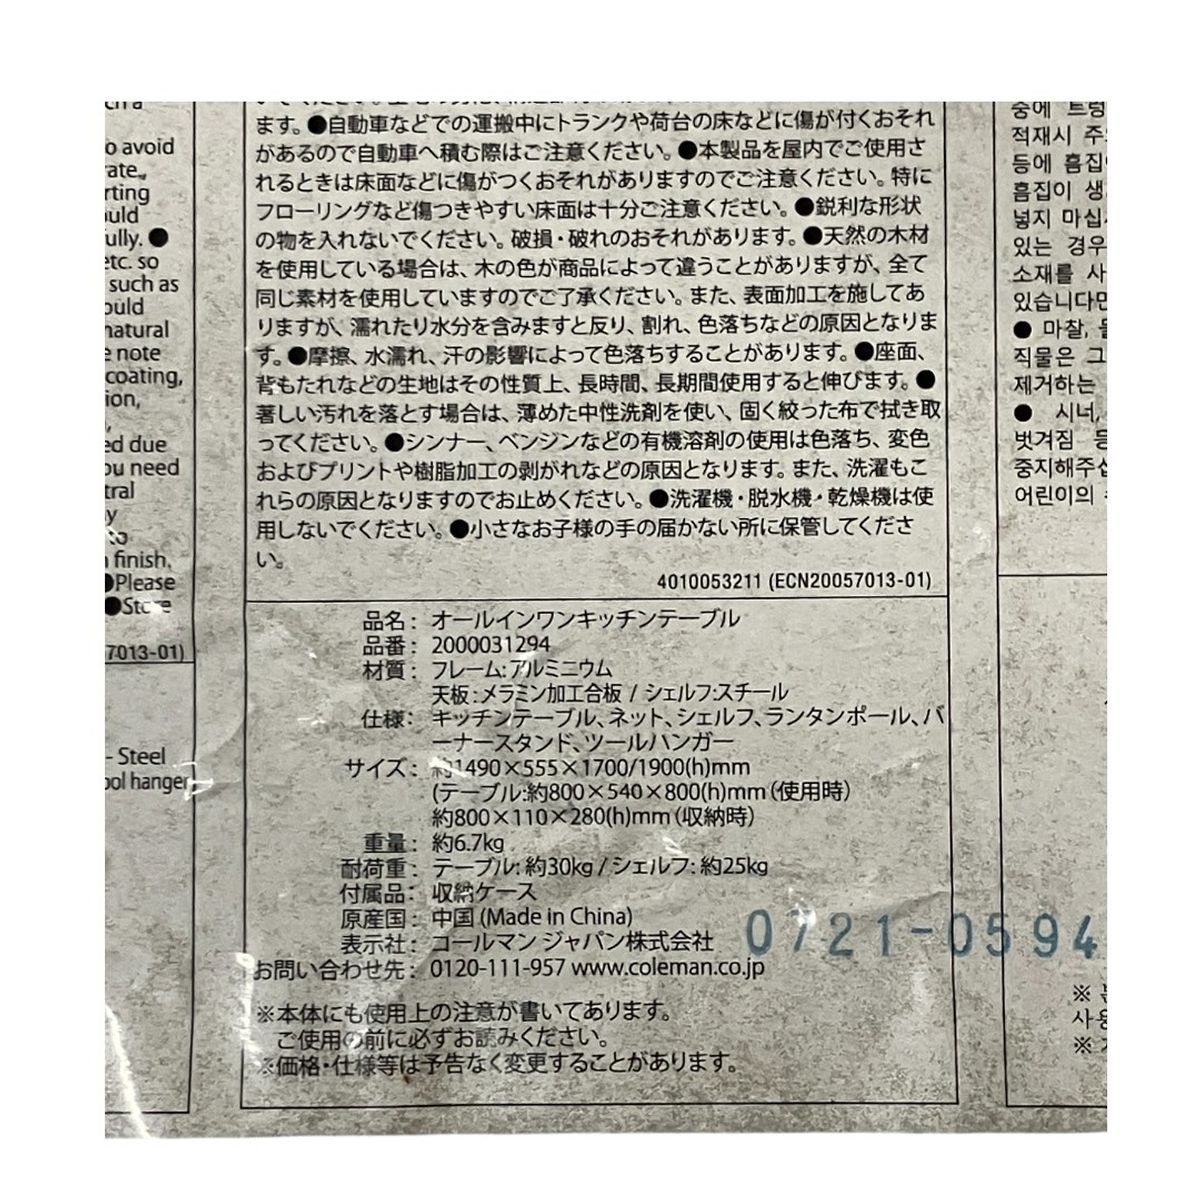 ch a
to avoid
rate.
rting
ould
fully. ●
etc. so
such as
ould
natural
e note
coating,
ion,
ed due
ou need
tral
y
to
n finish.
●Please
●Store
7013-01)
- Steel
ool hanger
ます。●自動車などでの運搬中にトランクや荷台の床などに傷が付くおそれ
があるので自動車へ積む際はご注意ください。●本製品を屋内でご使用さ
れるときは床面などに傷がつくおそれがありますのでご注意ください。特に
フローリングなど傷つきやすい床面は十分ご注意ください。●鋭利な形状
の物を入れないでください。破損・破れのおそれがあります。●天然の木材
を使用している場合は、木の色が商品によって違うことがありますが、全て
同じ素材を使用していますのでご了承ください。また、表面加工を施してあ
りますが、濡れたり水分を含みますと反り、割れ、色落ちなどの原因となりま
す。●摩擦、水濡れ、汗の影響によって色落ちすることがあります。●座面、
背もたれなどの生地はその性質上、長時間、長期間使用すると伸びます。●
著しい汚れを落とす場合は、薄めた中性洗剤を使い、固く絞った布で拭き取
ってください。●シンナー、ベンジンなどの有機溶剤の使用は色落ち、変色
およびプリントや樹脂加工の剥がれなどの原因となります。また、洗濯もこ
れらの原因となりますのでお止めください。●洗濯機・脱水機・乾燥機は使
用しないでください。●小さなお子様の手の届かない所に保管してくださ
い。
4010053211 (ECN20057013-01)
品名: オールインワンキッチンテーブル
品番: 2000031294
材質: フレーム:アルミニウム
天板:メラミン加工合板 / シェルフ:スチール
仕様: キッチンテーブル、ネット、シェルフ、ランタンポール、バ
ーナースタンド、ツールハンガー
サイズ: 約1490×555×1700/1900(h)mm
(テーブル:約800×540×800(h)mm(使用時)
約800×110×280(h)mm(収納時)
重量: 約6.7kg
耐荷重: テーブル: 約30kg / シェルフ: 約25kg
付属品: 収納ケース
原産国: 中国 (Made in China)
表示社: コールマン ジャパン株式会社
お問い合わせ先: 0120-111-957 www.coleman.co.jp
0721-0594
※本体にも使用上の注意が書いてあります。
ご使用の前に必ずお読みください。
※価格・仕様等は予告なく変更することがあります。
중에 트렁
적재시 주
등에 흠집
흠집이 생
넣지 마십시
있는 경우
소재를 사
있습니다만
● 마찰,
직물은 그
제거하는
● 시너,
벗겨짐 등
중지해주십
어린이의
※
사용
※